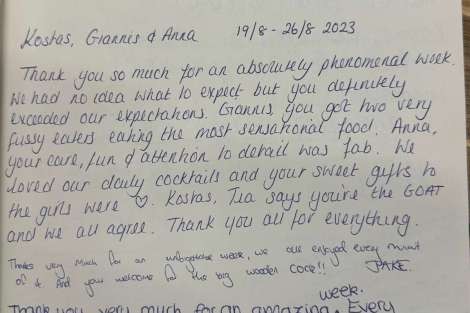 Kostas, Giannis & Anna 19/8 - 26/8 2023
Thank you so much for an absolutely phenomenal week.
We had no idea what to expect but you definitely
exceeded our expectations. Giannis, you got two very
fussy eaters eating the most sensational food. Anna,
your care, fun & attention to detail was fab. We
loved our daily cocktails and your sweet gifts to
the girls were ♡. Kostas, Tia says you're the GOAT
and we all agree. Thank you all for everything.
Thanks very much for an week, we all enjoyed every minute
of it. And you welcome for the big wooden !! JAKE.
week.
Thank you very much for an amazing. Every